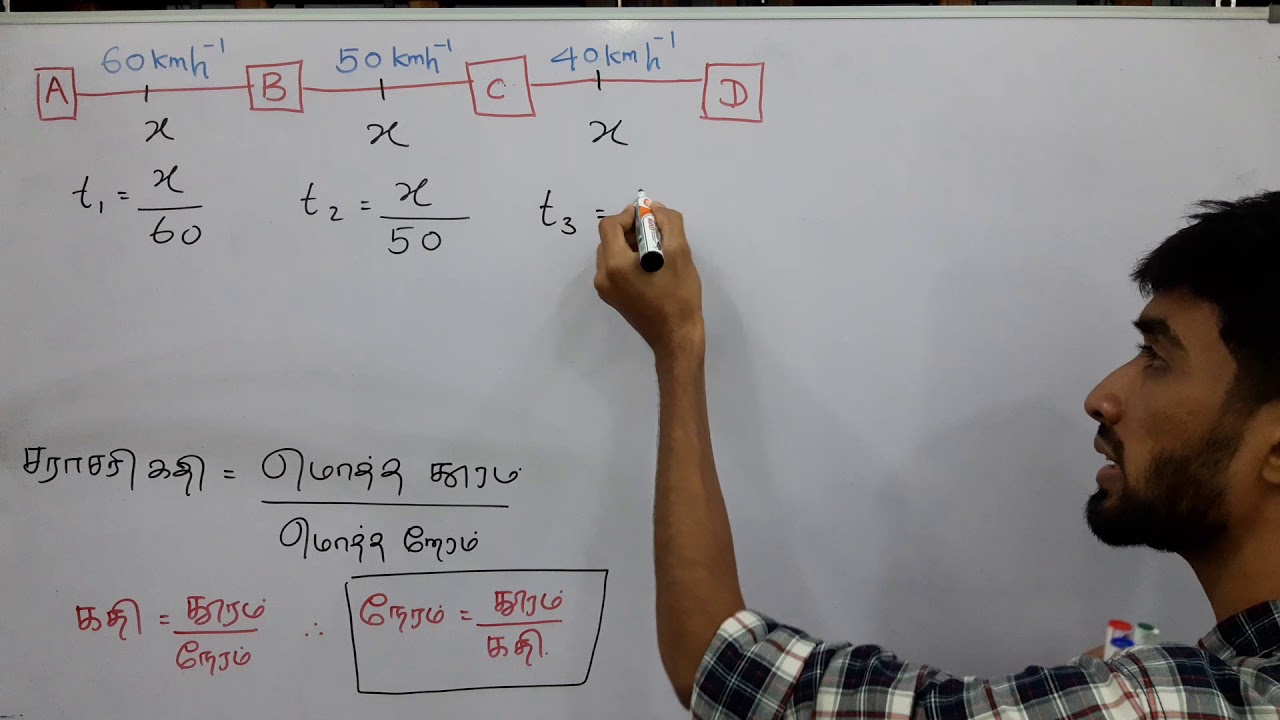 60 kmh⁻¹ 50 kmh⁻¹ 40 kmh⁻¹
A B C D
x x x
t₁ = x/60 t₂ = x/50 t₃ =
சராசரி கதி = மொத்த தூரம்
மொத்த நேரம்
கதி = தூரம்/நேரம் ∴ நேரம் = தூரம்/கதி.